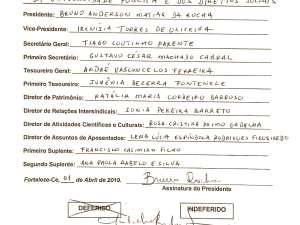 DE SEGURIDADE PÚBLICA E DOS DIREITOS SOCIAIS
Presidente: BRUNO ANDERSON MATIAS DA ROCHA
Vice-Presidente: IRENISIA TORRES DE OLIVEIRA
Secretário Geral: TIAGO COUTINHO PARENTE
Primeiro Secretário: GUSTAVO CÉSAR MACHADO CABRAL
Tesoureiro Geral: ANDRÉ VASCONCELOS FERREIRA
Primeiro Tesoureiro: BECERRA FONTENELE
Diretor de Patrimônio: NATÁLIA MARIA CORDEIRO BARROSO
Diretor de Relações Intersindicais: SONIA PEREIRA BARRETO
Diretor de Atividades Científicas e Culturais: ROSA CRISTINA PRIMO GADELHA
Diretor de Assuntos de Aposentados: LENA LÚCIA ESPÍNDOLA RODRIGUES FIGUEIREDO
Primeiro Suplente: FRANCISCO CASIMIRO FILHO
Segundo Suplente: ANA PAULA RABELO E SILVA
Fortaleza-Ce, 01 de Abril de 2019. Bruno Rocha
Assinatura do Presidente
DEFERIDO INDEFERIDO